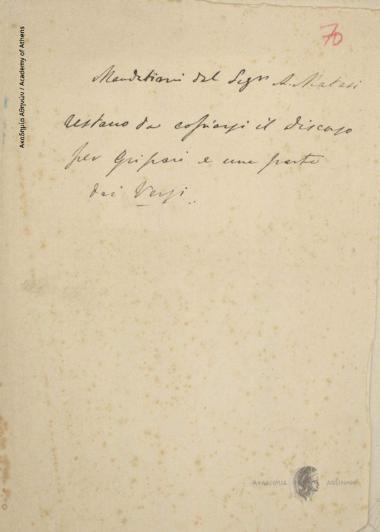 70
del Sigr A. Matesi
restano da copiarsi il discorso
per Grispari e una parte
dei Versi.
Ακαδημία Αθηνών / Academy of Athens
ΑΚΑΔΗΜΙΑ ΑΘΗΝΩΝ